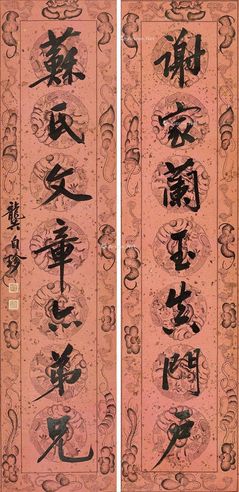 谢家蘭玉真門户
蘇氏文章亦弟兄
龔自珍